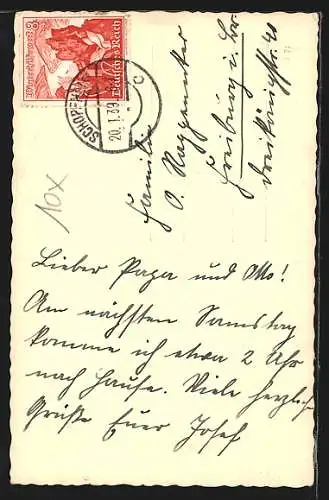 Deutsches Reich
SCHOPFHEIM
20.1.39.
C
10x
Familie
O. Roggenweiler
Freiburg i. Br.
Dreikönigstr. 40
Lieber Papa und Otto!
Am nächsten Samstag
komme ich etwa 2 Uhr
nach Hause. Viele herzliche
Grüße Euer Josef